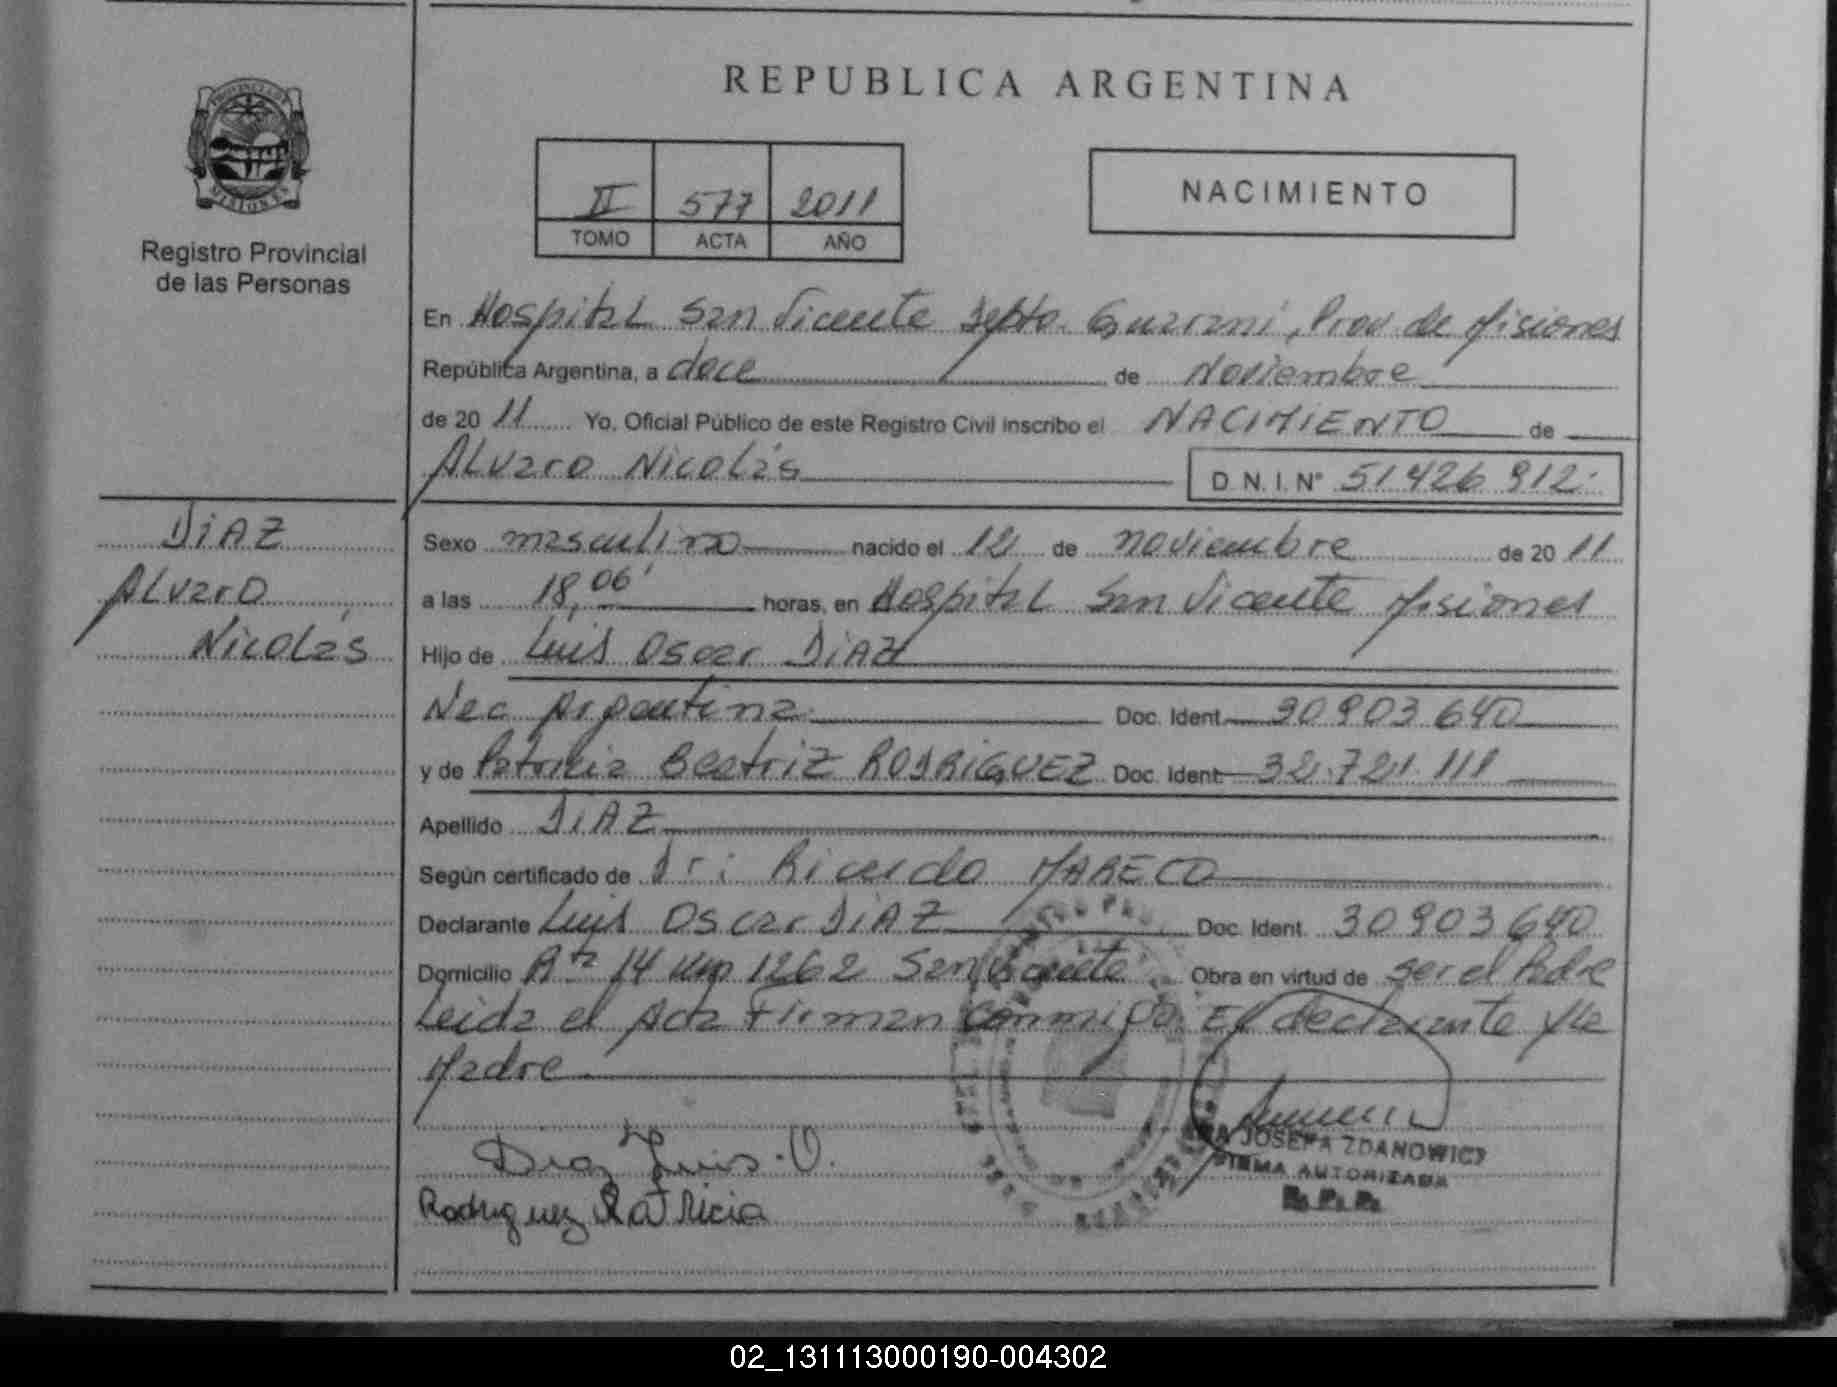 REPUBLICA ARGENTINA
PROVINCIA DE
MISIONES
Registro Provincial
de las Personas
II 577 2011
TOMO ACTA AÑO
NACIMIENTO
En Hospital San Vicente Depto. Guarani, Prov de Misiones
República Argentina, a doce de Noviembre
de 2011 Yo, Oficial Público de este Registro Civil inscribo el NACIMIENTO de
Alvaro Nicolás D.N.I.Nº 51426912.
DIAZ
Alvaro
Nicolás
Sexo masculino nacido el 12 de noviembre de 2011
a las 18,06' horas, en Hospital San Vicente Misiones
Hijo de Luis Oscar DIAZ
Nac Argentina Doc. Ident. 30903640
y de Patricia Beatriz RODRIGUEZ Doc. Ident. 32.721.111
Apellido DIAZ
Según certificado de Dr: Ricardo MARECO
Declarante Luis Oscar DIAZ Doc. Ident. 30903640
Domicilio Rta 14 Km 1262 San Vicente Obra en virtud de ser el Padre
Leida el Acta Firman Conmigo El declarante y la
Madre
Diaz Luis .O.
Rodriguez Patricia
JOSEFA ZDANOWICZ
FIRMA AUTORIZADA
R.P.P.
02_131113000190-004302